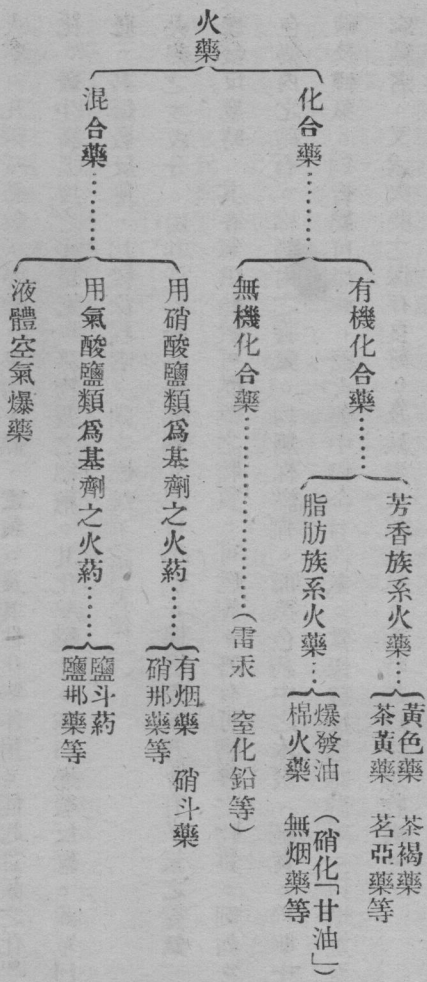 火藥
化合藥
有機化合藥
芳香族系火藥
黃色藥 茶褐藥
茶黃藥 茗亞藥等
脂肪族系火藥
爆發油 (硝化「甘油」)
棉火藥 無烟藥等
無機化合藥
(雷汞 窒化鉛等)
混合藥
用硝酸鹽類爲基劑之火葯
有烟藥 硝斗藥
硝𨙻藥等
用氣酸鹽類爲基劑之火葯
鹽斗葯
鹽𨙻藥等
液體空氣爆藥